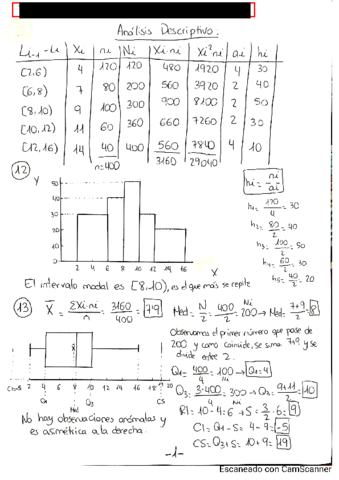 Análisis Descriptivo:
Li-1-Li Xi ni Ni Xi·ni Xi²ni ai hi
[2,6) 4 120 120 480 1920 4 30
[6,8) 7 80 200 560 3920 2 40
[8,10) 9 100 300 900 8100 2 50
[10,12) 11 60 360 660 7260 2 30
[12,16) 14 40 400 560 7840 4 10
n=400 3160 29040
12
Y
50
40
30
20
10
2 4 6 8 10 12 14 16
X
hi = ni/ai
h1 = 120/4 = 30
h2 = 80/2 = 40
h3 = 100/2 = 50
h4 = 60/2 = 30
h5 = 40/2 = 20
El intervalo modal es [8,10), es el que más se repite
13 X̄ = ΣXi·ni/n = 3160/400 = 7'9
Med = N/2 = 400/2 = 200 → Med = 7+9/2 = 8
Ni
Observamos el primer número que pase de
200 y como coincide, se suma 7 y 9 y se
divide entre 2.
Q1 = 400/4 = 100 → Q1 = 4
Q3 = 3·400/4 = 300 → Q3 = 9+11/2 = 10
Ni
RI = 10-4 = 6 → S = 3/2·6 = 9
CI = Q1-S = 4-9 = -5
CS = Q3+S = 10+9 = 19
2 4 6 8 10 12 14 16 18
Q1 Med Q3 CS
No hay observaciones anómalas y
es asimétrica a la derecha.
-1-
Escaneado con CamScanner